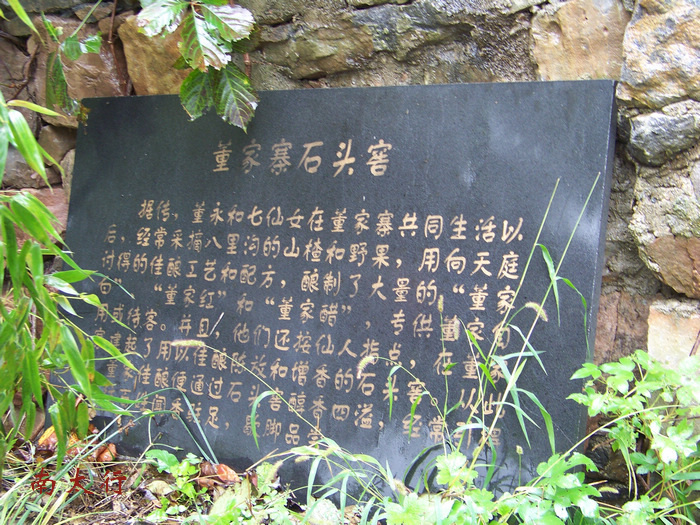 董家寨石头窖
据传，董永和七仙女在董家寨共同生活以
后，经常采摘八里沟的山楂和野果，用向天庭
讨得的佳酿工艺和配方，酿制了大量的“董家
白”“董家红”和“董家醋”，专供董家自
用或待客。并且，他们还按仙人指点，在董家
寨建起了用以佳酿陈放和增香的石头窖，从此
董家佳酿便通过石头窖醇香四溢，经常引
闻香驻足，歇脚品尝
南太行